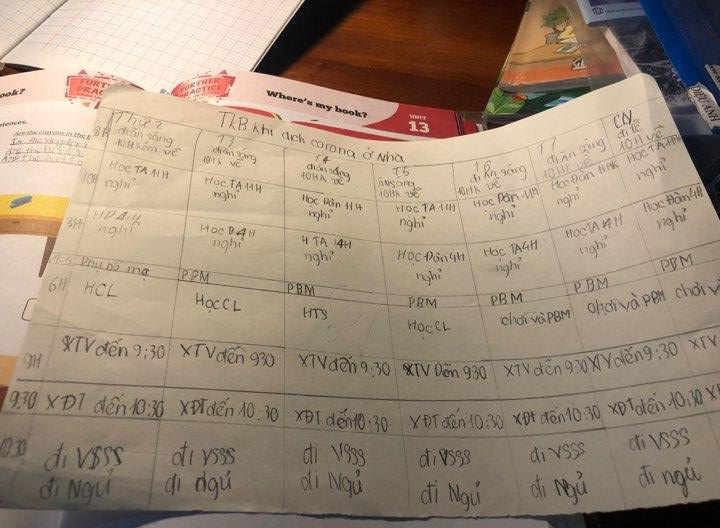 Where's my book?
UNIT
13
FURTHER
PRACTICE
FURTHER
PRACTICE
ook?
TKB khi dịch corona ở nhà
Thứ 2 T3 T4 T5 T6 T7 CN
8H đi ăn sáng đi ăn sáng đi ăn sáng ăn sáng đi ăn sáng đi ăn sáng đi lễ
10H về 10H về 10H về 10H về 10H về 10H về
10H Học TA 11H Học TA 11H Học Đàn 11H Học TA 11H Học Đàn 11H Học Đàn 11H Học TA 11H
nghỉ nghỉ nghỉ nghỉ nghỉ nghỉ nghỉ
3H HĐ 4H Học Đ 4H H TA 4H Học Đàn 4H Học TA 4H Học TA 4H Học Đàn 4H
nghỉ nghỉ nghỉ nghỉ nghỉ nghỉ nghỉ
Phụ bố mẹ PBM PBM PBM PBM PBM PBM
6H HCL Học CL HTS Học CL chơi và PBM chơi và PBM chơi và
9H XTV đến 9:30 XTV đến 930 XTV đến 9:30 XTV Đến 930 XTV đến 9:30 XTV đến 9:30 XTV
9.30 XĐT đến 10:30 XĐT đến 10:30 XĐT đến 10:30 XĐT đến 10:30 XĐT đến 10:30 XĐT đến 10:30
10:30 đi VSSS đi VSSS đi VSSS đi VSSS đi VSSS đi VSSS
đi Ngủ đi ngủ đi Ngủ đi Ngủ đi Ngủ đi ngủ